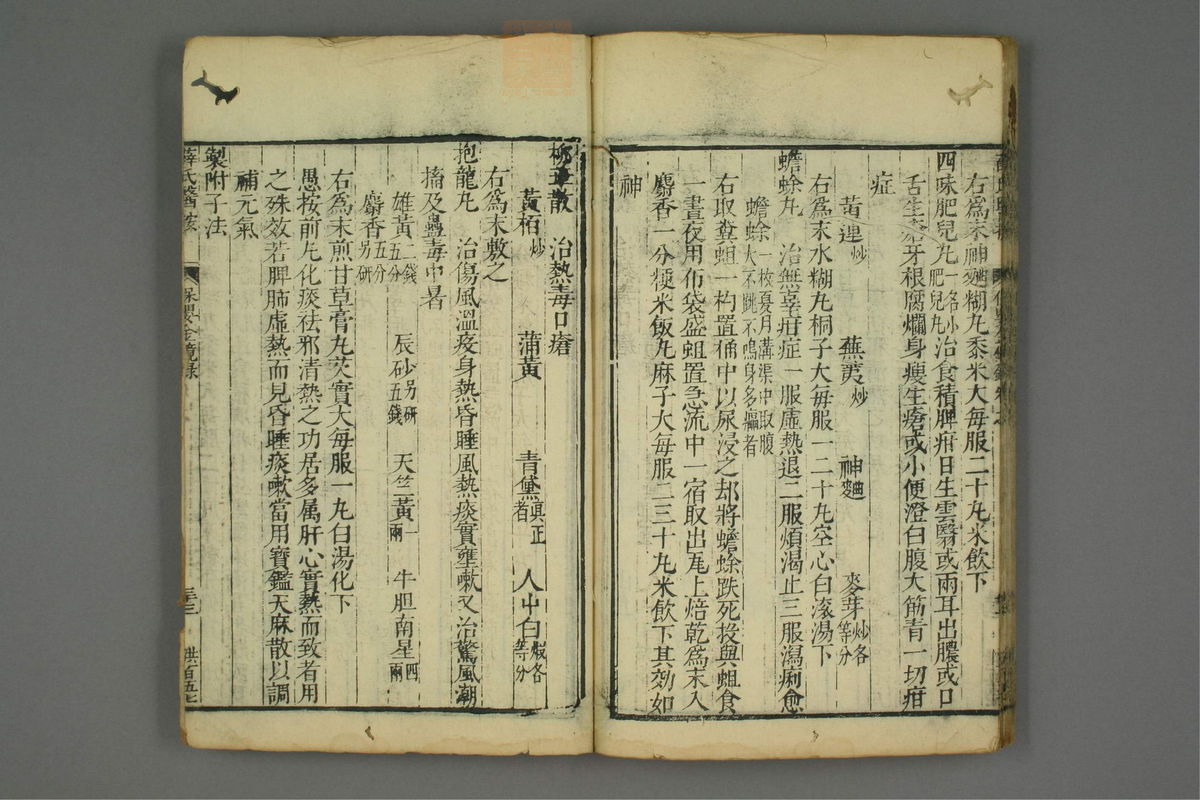 右爲末神麯糊丸黍米大每服二十丸米飲下
四味肥兒丸一名小肥兒丸治食積脾疳目生雲翳或兩耳出膿或口
舌生瘡牙根腐爛身瘦生瘡或小便澄白腹大筋青一切疳
症
黃連炒 蕪荑炒 神麯 麥芽炒各等分
右爲末水糊丸桐子大每服一二十丸空心白滚湯下
蟾蜍丸 治無辜疳症一服虛熱退二服煩渴止三服瀉痢愈
蟾蜍一枚夏月溝渠中取腹大不跳不鳴身多癩者
右取糞蛆一杓置桶中以尿浸之却將蟾蜍跌死投與蛆食
一晝夜用布袋盛蛆置急流中一宿取出瓦上焙乾爲末入
麝香一分粳米飯丸麻子大每服二三十丸米飲下其効如
神
柳華散 治熱毒口瘡
黃栢炒 蒲黃 青黛真正者 人中白煅各等分
右爲末敷之
抱龍丸 治傷風溫疫身熱昏睡風熱痰實壅嗽又治驚風潮
搐及蠱毒中暑
雄黃二錢五分 辰砂另研五錢 天竺黃一兩 牛胆南星四兩
麝香五分另研
右爲末煎甘草膏丸芡實大每服一丸白湯化下
愚按前丸化痰祛邪清熱之功居多属肝心實熱而致者用
之殊效若脾肺虛熱而見昏睡痰嗽當用寶鑑天麻散以調
補元氣
製附子法
薛氏醫案 保嬰金鏡錄 三三 洪百五七